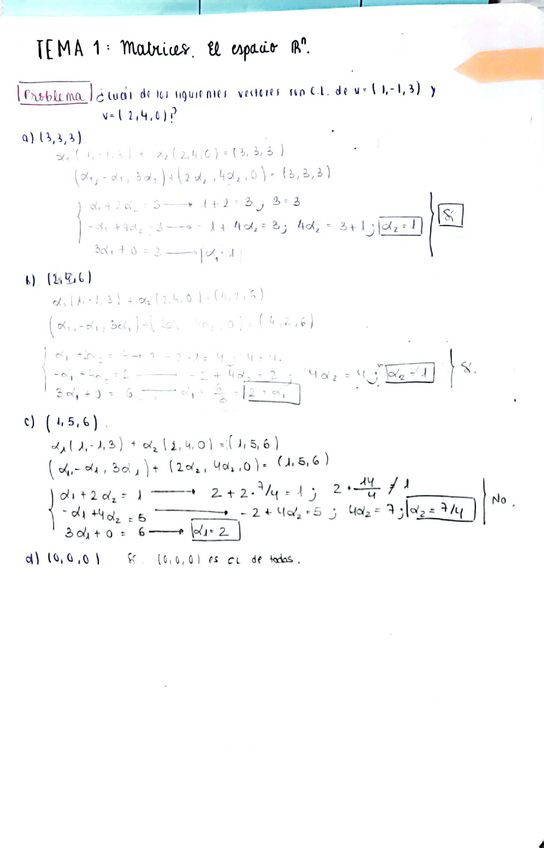 TEMA 1: Matrices. El espacio Rⁿ.
Problema ¿Cuál de los siguientes vectores son C.L. de v=(1,-1,3) y
v=(2,4,0)?
a) (3,3,3)
α₂(2,4,0)=(3,3,3)
(α₁,-α₁,3α₁)+(2α₂,4α₂,0)=(3,3,3)
α₁+2α₂=3 → 1+2=3; 3=3
-α₁+4α₂=3 → -1+4α₂=3; 4α₂=3+1; α₂=1 Sí
3α₁+0=3 → α₁=1
b) (4,2,6)
α₁(1,-1,3)+α₂(2,4,0)=(4,2,6)
(α₁,-α₁,3α₁) (4,2,6)
-α₁+4α₂=2 → -2+4α₂=2; 4α₂=4; α₂=1 Sí.
3α₁+0=6 → α₁=6/3 2=α₁
c) (1,5,6).
α₁(1,-1,3)+α₂(2,4,0)=(1,5,6)
(α₁,-α₁,3α₁)+(2α₂,4α₂,0)=(1,5,6)
α₁+2α₂=1 → 2+2·7/4=1; 2·14/4≠1
-α₁+4α₂=5 → -2+4α₂=5; 4α₂=7; α₂=7/4 No.
3α₁+0=6 → α₁=2
d) (0,0,0) Sí. (0,0,0) es CL de todas.